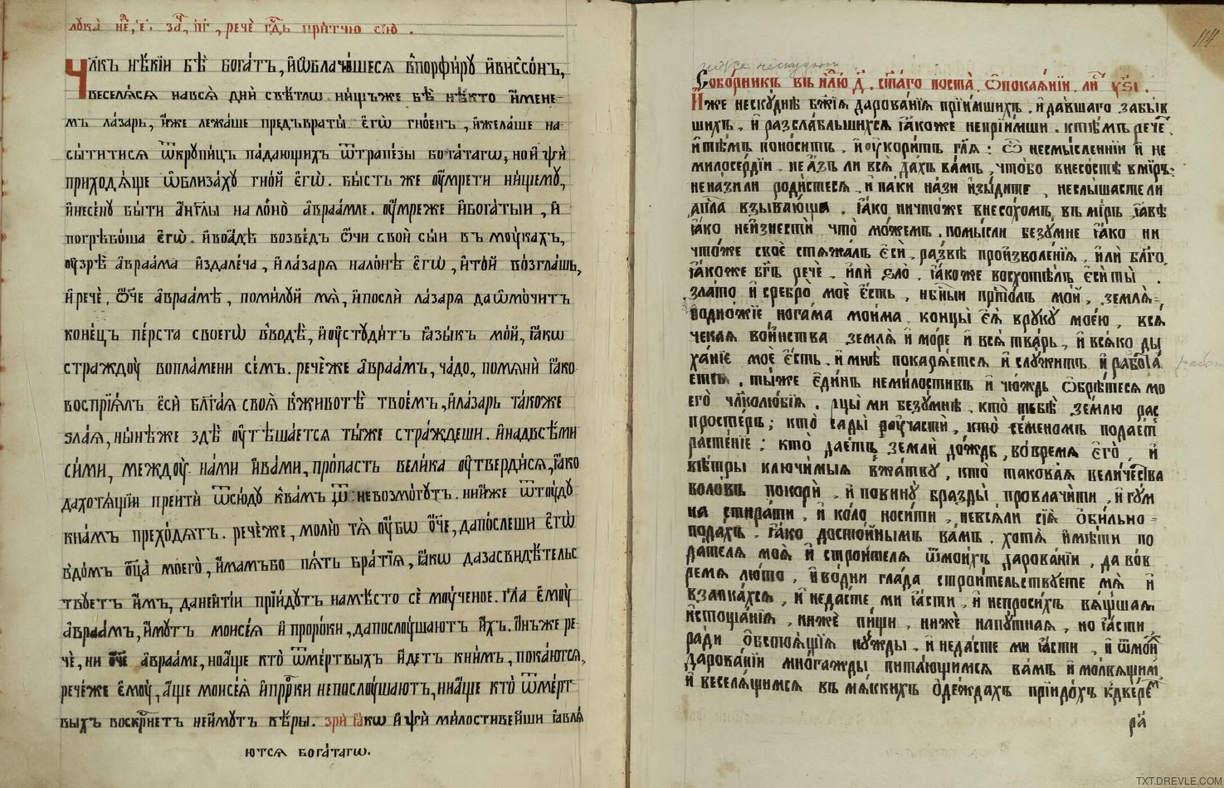 лука̀ нєⷣ, є҃. заⷱ, п҃г, речѐ гдⷭ҇ь при́тчю сїю̀.
Чл҃къ нѣ́кїи бѣ̀ бога́тъ, и҆ѡ҆блача́шеся впорфи́ру и҆ви́ссонъ,
веселя́ся нався̀ дни̂ свѣ́тлѡ. ни́щъже бѣ̀ нѣ́кто и҆мене-
мъ ла́зарь, и҆́же лежа́ше предъвраты̀ є҆гѡ̀ гно́енъ, и҆жела́ше на-
сы́титися ѿкрупи́цъ па́дающихъ ѿтрапе́зы бога́тагѡ, но и҆ пси̂
приходя́ще ѡ҆близа́ху гно́й є҆гѡ̀. бы́сть же ᲂу҆мре́ти ни́щему,
и҆несе́ну бы́ти а҆́нг҃лы на ло́но а҆враа́мле. ᲂу҆́мреже и҆бога́тыи, и҆
погребо́ша є҆гѡ̀. и҆воа́дѣ возве́дъ ѻ҆́чи свои̂ сы́и въ мо́укахъ,
ᲂу҆зрѣ̀ а҆враа́ма и҆здале́ча, и҆ла́заря нало́нѣ є҆гѡ̀, и҆то́й возгла́шь,
и҆ речѐ, ѻ҆́ч҃е а҆враа́мѣ, поми́луй мя̀, и҆послѝ ла́заря да ѡ҆мо́читъ
коне́цъ пе́рста своегѡ̀ вводѣ̀, и҆ᲂу҆студи́тъ ꙗ҆зы́къ мо́й, ꙗ҆́кѡ
стра́ждоу вопла́мени се́мъ. рече́же а҆враа́мъ, ча́до, помянѝ ꙗ҆́ко
воспрїя́лъ є҆сѝ бл҃га́я своя̀ вживотѣ̀ твое́мъ, и҆ла́зарь та́коже
ѕла́я, ны́нѣже здѣ̀ ᲂу҆тѣша́ется ты́же стра́ждеши. и҆надвсѣ́ми
си́ми, между̀ на́ми и҆ва́ми, про́пасть вели́ка ᲂу҆тверди́ся, ꙗ҆́ко
дахотя́щїи преитѝ ѿсю́ду ква́мъ невозмо́гутъ. ни и҆́же ѿту́ду
кна́мъ прехо́дятъ. рече́же, молю́ тя ᲂу҆́бѡ ѻ҆́ч҃е, дапо́слеши є҆гѡ̀
вдо́мъ ѻ҆тц҃а̀ моего̀, и҆́мамъбо пя́ть бра́тїя, ꙗ҆́кѡ дазасвидѣ́тельс
твуетъ и҆́мъ, данеи҆тїѝ прїи́дутъ намѣ́сто сѐ моу́ченое. гл҃а є҆моу̀
а҆враа́мъ, и҆́мутъ моисе́я и҆ проро́ки, дапослоу́шаютъ и҆́хъ. ѻ҆́нъже ре
чѐ, ни ѻ҆́ч҃е а҆враа́ме, ноа҆́ще кто̀ ѿме́ртвыхъ и҆́детъ кни́мъ, пока́ются,
рече́же є҆моу̀, а҆́ще моисе́я и҆прⷪ҇ро́ки непослоу́шаютъ, ниа҆́ще кто̀ ѿме́рт-
выхъ воскрⷭ҇нетъ неи҆́мутъ вѣ́ры. зрѝ ꙗ҆́кѡ и҆ пси̂ милостиве́йши ꙗ҆вля
ются бога́тагѡ.
114
Собо́рникъ въ нⷣлю д҃. ст҃а́го поста̀. ѡ҆покая́нїи. лиⷭ҇
И҆́же неску́днѣ бж҃їя дарова́нїя прїи́мшихъ. и҆да́вшаго забы́в
шихъ. и҆ разсла́бльшихся ꙗ҆́коже непрїи́мши. ктѣ́мъ рече́
и҆тѣ́мъ поно́ситъ. и҆ᲂу҆кори́тъ гл҃я: ѽ несмы́сленнїи и҆ не
милосе́рдїи. не а҆́зъ ли вся̀ да́хъ ва́мъ, что́бо внесо́стѣ вмі́ръ.
нена́зили роди́стеся. и҆ па́ки на́зи и҆зы́дите. неслы́шастели
а҆пⷭ҇ла взыва́юща. ꙗ҆́ко ничто́же внесо́хомъ въ мі́ръ ꙗ҆́вѣ
ꙗ҆́ко неи҆знестѝ что̀ мо́жемъ. помы́сли безу́мне ꙗ҆́ко ни
что́же своѐ стяжа́лъ є҆сѝ. ра́звѣ произволе́нїя. и҆лѝ бл҃го.
ꙗ҆́коже бг҃ъ речѐ. и҆лѝ ѕло̀. ꙗ҆́коже восхотѣ́лъ є҆сѝ ты̀
зла́то и҆ сребро̀ моѐ є҆́сть. нб҃ныи прⷭ҇то́лъ мо́й. земля̀
подно́жїе нога́ма мои́ма. концы̀ є҆я̀ вруку̀ мое́ю. вся́
ческая во́инства земля̀ и҆ мо́ре и҆ вся̀ тва́рь. и҆ вся́ко ды
ха́нїе моѐ є҆́сть. и҆ мнѣ̀ покаря́ется и҆ слу́житъ. и҆ рабо́та
етъ. ты́же є҆ди́нъ неми́лостивъ и҆ чю́ждь ѻ҆брѣ́теся мо
его̀ чл҃колю́бїя. рцы́ ми безу́мнѣ. кто̀ тебѣ̀ зе́млю рас
простѐръ; кто̀ сады̀ кто̀ сѣ́меномъ подае́т
расте́нїе; кто̀ дае́тъ землѝ до́ждь, вовре́мя є҆го̀. и҆
вѣ́тры ключи́мыя вжа́тву, кто̀ такова́я вели́чества
воло́въ покорѝ. и҆ повину̀ бразды̀ провлачи́ти, и҆ гум
на стира́ти. и҆ ко́ло носи́ти. невся́ли сїя̀ ѻ҆би́льно
пода́хъ. ꙗ҆́ко досто́йнымъ ва́мъ. хотя̀ и҆мѣ́ти по
дателя моя̀ и҆ строи́теля ѿмои́хъ дарова́нїи, да во́в
ремя лю́то. и҆во́дни гла́да строи́тельствуете мя̀ и҆
взалка́хся. и҆ неда́сте ми ꙗ҆́сти. и҆ непроси́хъ вя́щшая
и҆стоща́нїя. ни́же пи́щи. ни́же напу́тная, но ꙗ҆́сти
ра́ди ѻ҆бстоя́щїя ну́жды. и҆ неда́сте ми ꙗ҆́сти. и҆ ѿмои́
дарова́нїи мно́гажды пита́ющимся ва́мъ и҆ мо́лвящим
и҆ веселя́щимся въ мя́скихъ ѻ҆де́ждахъ прїидо́хъ кдве́ре
ра́
TXT.DREVLE.COM